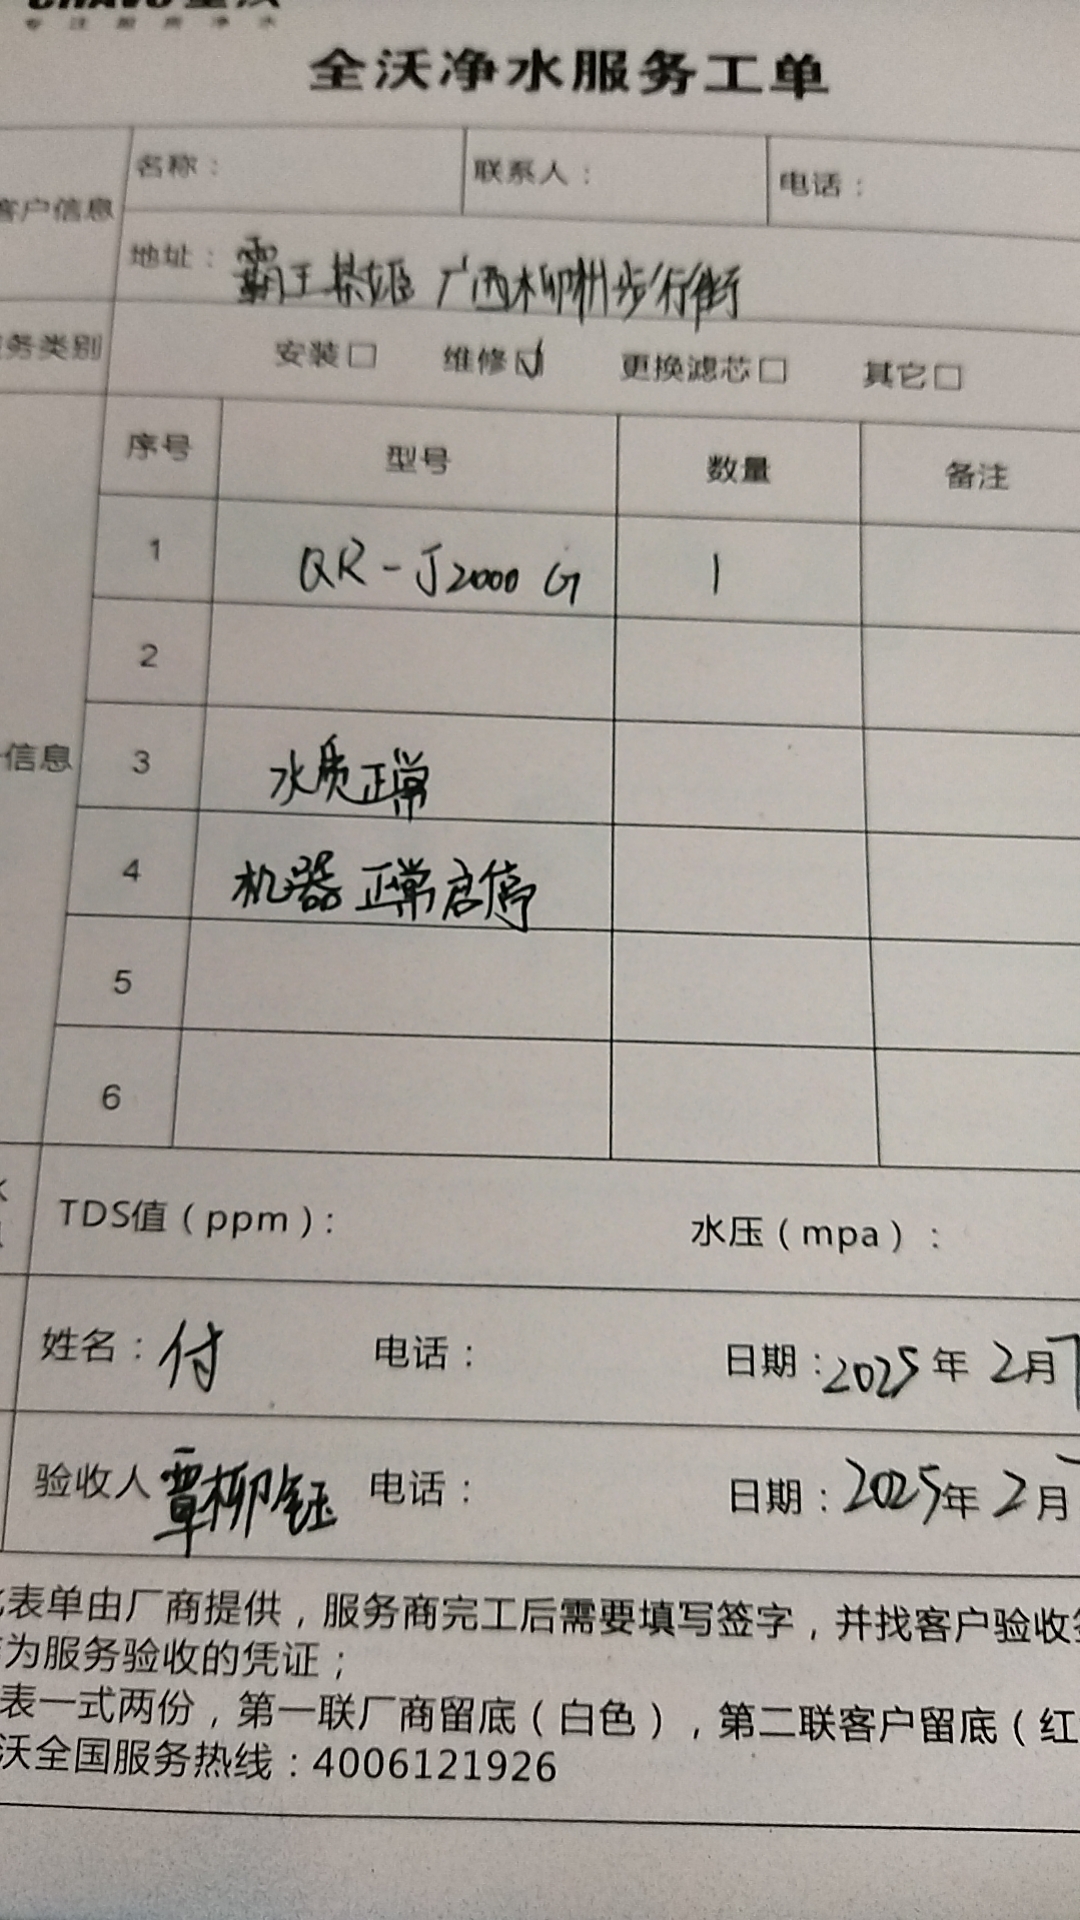 专注厨房净水
全沃净水服务工单
客户信息 名称： 联系人： 电话：
地址：霸王茶姬 广西柳州步行街
务类别 安装□ 维修☑ 更换滤芯□ 其它□
序号 型号 数量 备注
1 QR-J2000 G 1
2
信息 3 水质正常
4 机器正常启停
5
6
TDS值（ppm）： 水压（mpa）：
姓名：付 电话： 日期：2025年2月7
验收人 覃柳钰 电话： 日期：2025年2月
表单由厂商提供，服务商完工后需要填写签字，并找客户验收
为服务验收的凭证；
表一式两份，第一联厂商留底（白色），第二联客户留底（红
沃全国服务热线：4006121926